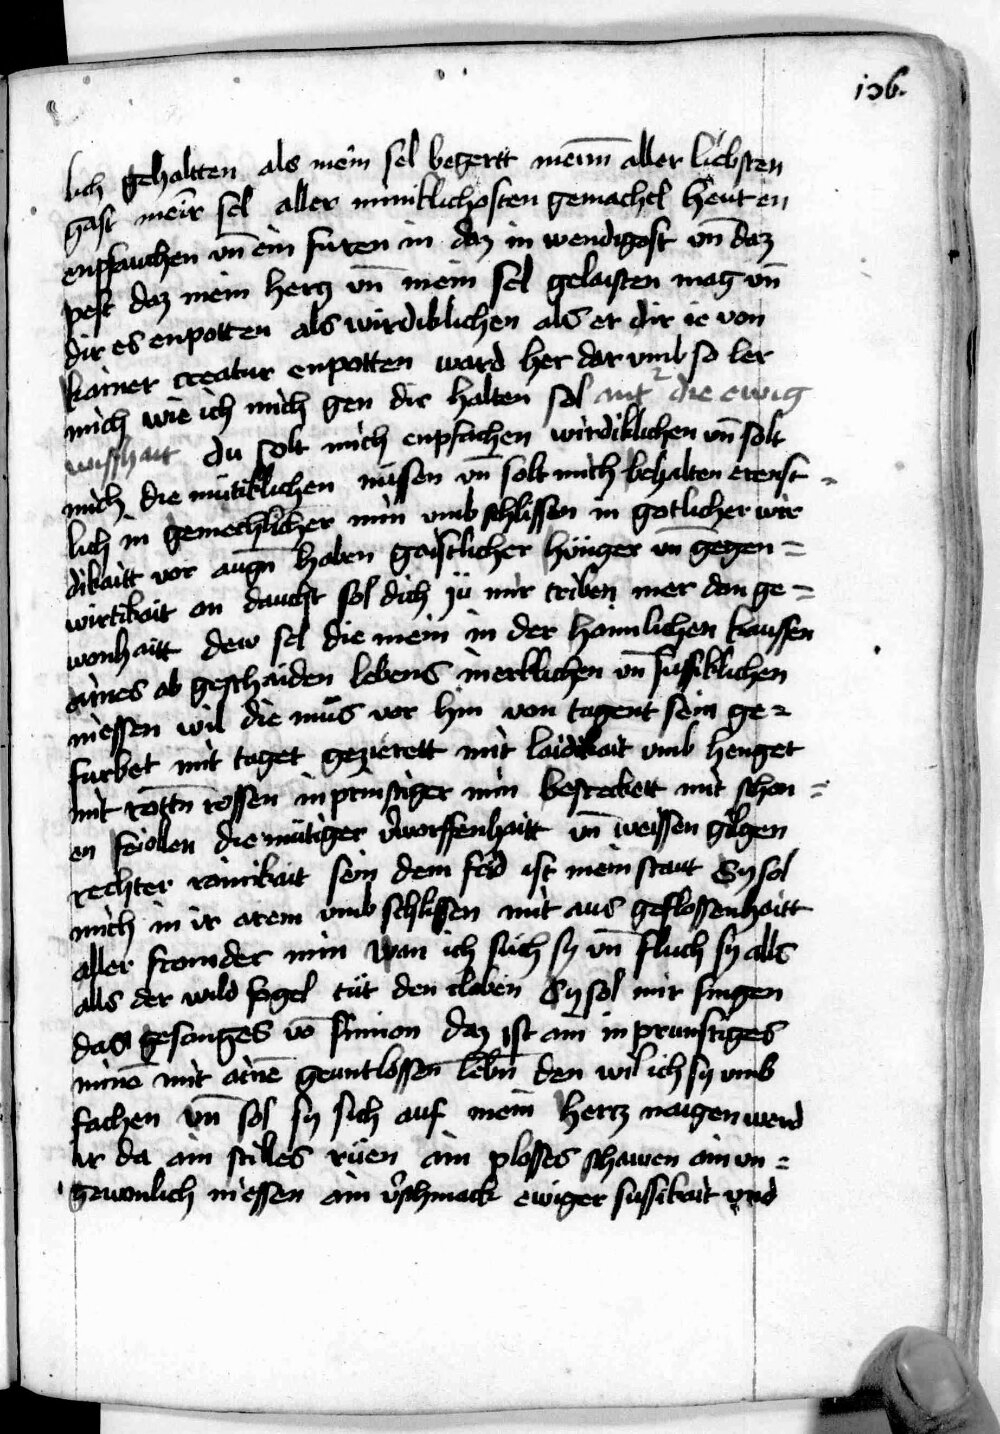 136.
lich gehaltten als mein sel begertt meinn aller liebsten
gast meir sel aller miniklichosten gemachel heut en
enpfauchen vn̄ ein furen in daz in wendigost vn̄ daz
pest daz mein hertz vn̄ mein sel gelaisten mag vn̄
dir es enpotten als wirdiklichen als er dir ie von
kainer creatur enpotten ward her dar vmb so ler
mich wie ich mich gen dir halten sol ant² die ewig
weisshait du solt mich enpfachen wirdiklichen vn̄ solt
mich die mütiklichen nüsen vn̄ solt mich behalten erenst =
lich in gemechlicher min vmb schlissen in gotlicher wir
dikaitt vor augn̄ haben gaistlicher hünger vn̄ gegen =
wirtikait an daucht sol dich zü mir triben mer dan ge =
wonhaitt dew sel die mein in der haimlichen klaussen
aines ab geschaiden lebens inerklichen vn̄ sussiklichen
niessen wil die müs vor hin von tugent sein ge =
furbet mit tuget gezierett mit laidikait vmb henget
mit rottn̄ rossen inprinstiger min besteckett mit schon =
en feiollen die mütiger v̓worffenhaitt vn̄ weissen gilgen
rechter rainikait sein dem frid ist mein staut Sy sol
mich in ir arem vmb schlissen mit aus geslossenhaitt
aller fromder min wan ich flüch sy vn̄ fluch sy alls
alls der wild fogel tüt den cloben Sy sol mir singen
das gesanges vō sinion daz ist ain in prunstiges
minē mit ainē gruntlossen lebn̄ den wil ich sy vmb
fachen vn̄ sol sy sich auf mein hertz naigen werd
ir da ain stilles rüen ain plosses schawen ain vn =
gewonlich niessen ain v̓schmack ewiger sussikait vnd